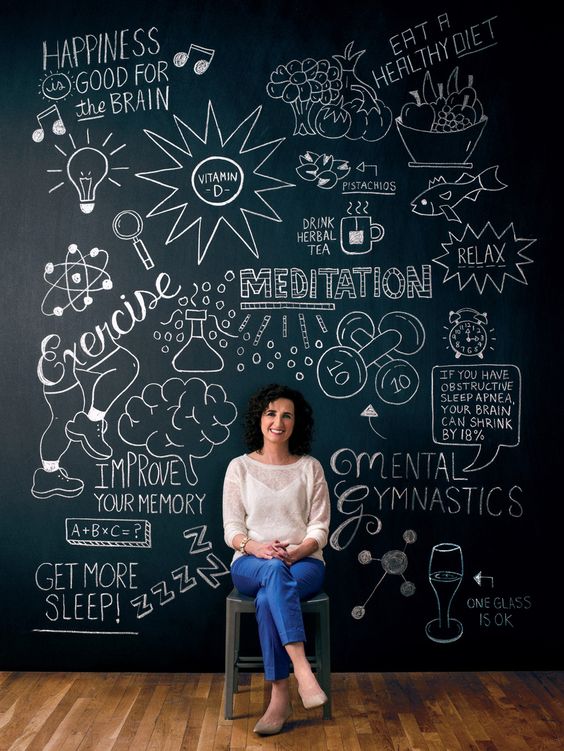 HAPPINESS
is GOOD FOR
the BRAIN
EAT A
HEALTHY DIET
VITAMIN
-D-
PISTACHIOS
DRINK
HERBAL
TEA
RELAX
MEDITATION
Exercise
10
10
IF YOU HAVE
OBSTRUCTIVE
SLEEP APNEA,
YOUR BRAIN
CAN SHRINK
BY 18%
IMPROVE
YOUR MEMORY
MENTAL
GYMNASTICS
A+B×C=?
GET MORE
SLEEP!
ZZZZZ
ONE GLASS
IS OK